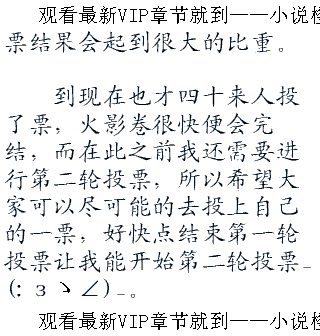 观看最新VIP章节就到——小说楼
票结果会起到很大的比重。
到现在也才四十来人投
了票，火影卷很快便会完
结，而在此之前我还需要进
行第二轮投票，所以希望大
家可以尽可能的去投上自己
的一票，好快点结束第一轮
投票让我能开始第二轮投票_
(: з ヽ ∠)_。
观看最新VIP章节就到——小说楼